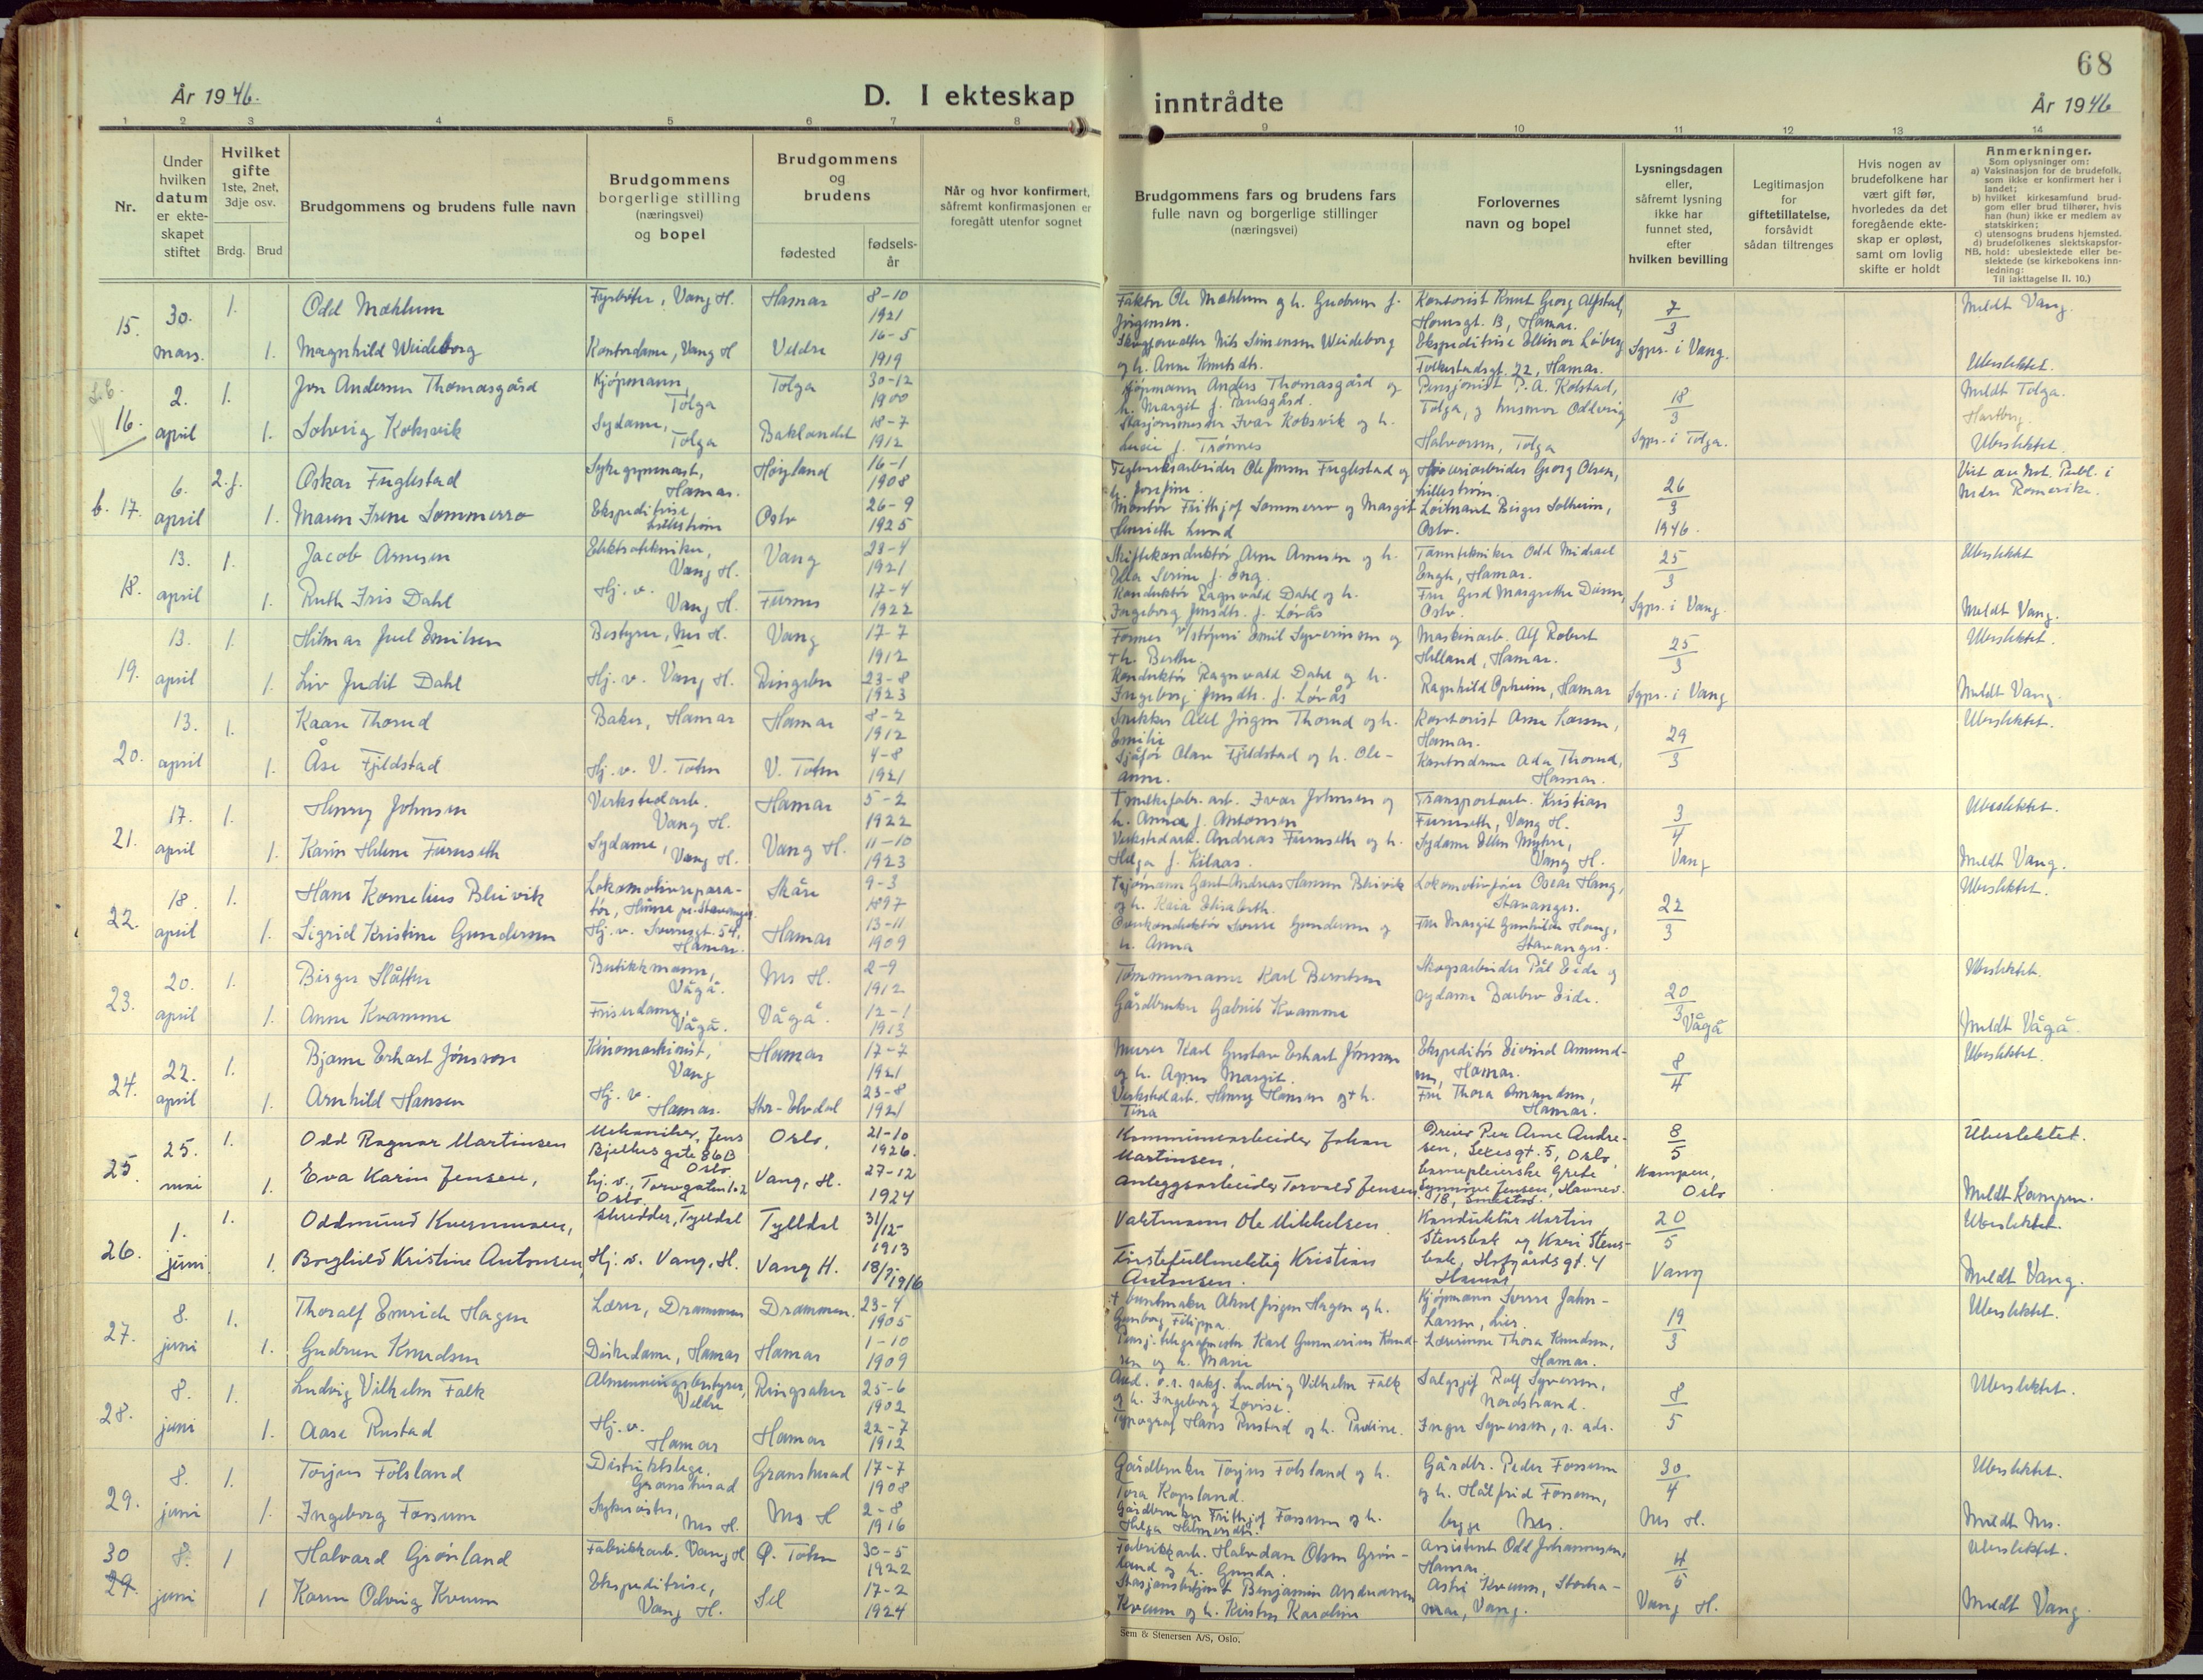 68
År 1946.
D. I ekteskap inntrådte
År 1946
1 2 3 4 5 6 7 8 9 10 11 12 13 14
Nr.
Under hvilken datum er ekteskapet stiftet
Hvilket gifte
1ste, 2net, 3dje osv.
Brdg. Brud
Brudgommens og brudens fulle navn
Brudgommens borgerlige stilling (næringsvei) og bopel
Brudgommens og brudens
fødested
fødselsår
Når og hvor konfirmert, såfremt konfirmasjonen er foregått utenfor sognet
Brudgommens fars og brudens fars fulle navn og borgerlige stillinger (næringsvei)
Forlovernes navn og bopel
Lysningsdagen eller, såfremt lysning ikke har funnet sted, efter hvilken bevilling
Legitimasjon for giftetillatelse, forsåvidt sådan tiltrenges
Hvis nogen av brudefolkene har vært gift før, hvorledes da det foregående ekteskap er opløst, samt om lovlig skifte er holdt
Anmerkninger.
Som oplysninger om:
a) Vaksinasjon for de brudefolk, som ikke er konfirmert her i landet;
b) hvilket kirkesamfund brudgom eller brud tilhører, hvis han (hun) ikke er medlem av statskirken;
c) utensogns brudens hjemsted.
d) brudefolkenes slektskapsforhold: ubeslektede eller beslektede (se kirkebokens innledning:
NB. Til iakttagelse II. 10.)
15. 30. mars. 1. Odd Mæhlum Fyrbøter, Vang H. Hamar 8-10 1921 Faktor Ole Mæhlum og h. Gudrun f. Jørgensen. Kontorist Knut Georg Alfstad, Hamar. 7/3 Meldt Vang.
1. Magnhild Weideborg Kontordame, Vang H Veldre 16-5 1919 Nils Simensen Weideborg og h. Anne Knutsdtr. Ekspeditrise 22, Hamar. Sgpr. i Vang. Ubeslektet.
16. 2. april 1. Jon Andersen Thomasgård Kjøpmann, Tolga Tolga 30-12 1900 Kjøpmann Anders Thomasgård og h. Margit Pensjonist P. A. Kolstad, Tolga, og husmor Oddveig Halvorsen, Tolga 18/3 Meldt Tolga.
1. Solveig Koksvik Sydame, Tolga Baklandet 18-7 1912 Stasjonsmester Ivar Koksvik og h. f. Trønnes Sgpr. i Tolga. Ubeslektet.
b. 17. 6. april 2. f. Oskar Fuglestad Sykegymnast, Hamar. Høyland 16-1 1908 Teglverksarbeider Ole Jonsen Fuglestad og h. Josefine. Georg Olsen, Lillestrøm. 26/3 1946. Viet av Not. Publ. i Nedre Romerike.
1. Maren Irene Sommerro Ekspeditrise, Lillestrøm Oslo 26-9 1925 Montør Frithjof Sommerro og Margit Henriette Lund Løitnant Birger Solheim, Oslo.
18. 13. april 1. Jacob Arnesen Elektrotekniker, Vang H. Vang 23-4 1921 Skiftekonduktør Arne Arnesen og h. Ella Serine f. Eng. Tanntekniker Odd Michael Engh, Hamar. 25/3 Ubeslektet
1. Ruth Iris Dahl Hj. v. Vang H. Furnes 17-4 1922 Konduktør Ragnvald Dahl og h. Ingeborg Jensdtr. f. Løvås Fru Gerd Margrethe Oslo. Sgpr. i Vang. Meldt Vang.
19. 13. april 1. Hilmar Juel Emilsen Bestyrer, Nes H. Vang 17-7 1912 Former v/støperi Emil Syversen og + h. Berthe. Maskinarb. Alf Robert Helland, Hamar. 25/3 Ubeslektet.
1. Liv Judit Dahl Hj. v. Vang H. Ringebu 23-8 1923 Konduktør Ragnvald Dahl og h. Ingeborg Jensdtr. f. Løvås Ragnhild Opheim, Hamar Sgpr. i Vang Meldt Vang.
20. 13. april 1. Kaare Thorud Baker, Hamar Hamar 8-2 1912 Snekker Axel Jørgen Thorud og h. Emilie Kontorist Arne Larsen, Hamar. 29/3 Ubeslektet.
1. Åse Fjeldstad Hj. v. V. Toten V. Toten 4-8 1921 Sjåfør Olav Fjeldstad og h. Oleanne. Kontordame Ada Thorud, Hamar.
21. 17. april 1. Henry Johnsen Verkstedarb. Vang H. Hamar 5-2 1922 + melkefabr. arb. Ivar Johnsen og h. Anna f. Antonsen Transportarb. Kristian Furuseth, Vang H. 3/4 Vang Ubeslektet.
1. Karin Helene Furuseth Sydame, Vang H. Vang H. 11-10 1923 Verkstedarb. Andreas Furuseth og h. Helga f. Kilaas. Sydame Ellen Myhre, Vang H. Meldt Vang.
22. 18. april 1. Hans Kornelius Bleivik Lokomotivreparatør, pr. Stavanger. Skåre 9-3 1897 Andreas Hansen Bleivik og h. Kaia Elisabeth. Lokomotivfører Oscar Haug, Stavanger. 22/3 Ubeslektet.
1. Sigrid Kristine Gundersen Hj. v. Sverresgt. 54, Hamar. Hamar 13-11 1909 Overkonduktør Sverre Gundersen og h. Anna Fru Margit Gunhilde Haug, Stavanger.
23. 20. april 1. Birger Slåtten Butikkmann, Vågå. Nes H. 2-9 1912 Tømmermann Karl Berntsen Skogsarbeider Pål Eide og sydame Barbro Eide. 20/3 Vågå Ubeslektet.
1. Anne Kvamme Friserdame, Vågå. Vågå. 12-1 1913 Gårdbruker Gabriel Kvamme Meldt Vågå.
24. 22. april 1. Bjarne Erhart Jónsson Kinomaskinist, Vang Hamar 17-7 1921 Murer Karl Gustav Erhart Jónsson og h. Agnes Margit. Ekspeditør Eivind Amundsen, Hamar. 8/4 Ubeslektet.
1. Arnhild Hansen Hj. v. Hamar. Stor-Elvdal 23-8 1921 Verkstedarb. Henry Hansen og + h. Tina Fru Thora Amundsen, Hamar.
25 25. mai 1. Odd Ragnar Martinsen Mekaniker, Jens Bjelkes gate 86B Oslo Oslo, 21-10 1926. Kommunearbeider Johan Martinsen, Dreier Per Arne Andresen, Oslo, 8/5 Kampen, Oslo Ubeslektet.
1. Eva Karin Jensen, hj. v., Torvgaten 102 Oslo Vang, H. 27-12 1924 Anleggsarbeider Torvald Jensen barnepleierske Grete Synnøve Jensen, 18, Meldt Kampen.
26. 1. juni 1. Oddmund Kvernmoen, skredder, Tylldal Tylldal 31/12- 1913 Vaktmann Ole Mikkelsen Konduktør Martin Stensbak og Kari Stensbak, Hofgårdsgt. 4 Hamar, 20/5 Vang Ubeslektet.
1. Borghild Kristine Antonsen, Hj. v. Vang, H. Vang H. 18/7 1916 Førstefullmektig Kristian Antonsen. Meldt Vang.
27. 8. juni 1. Thoralf Emrich Hagen Lærer, Drammen Drammen. 23-4 1905 + buntmaker Aksel Jørgen Hagen og h. Gunborg Filippa Kjøpmann Sverre Jahn-Larsen, Lier. 19/3 Ubeslektet.
1. Gudrun Knudsen Diskedame, Hamar Hamar 1-10 1909 Pensj. telegrafmester Karl Gunnerius Knudsen og h. Marie Lærerinne Thora Knudsen, Hamar.
28. 8. juni 1. Ludvig Vilhelm Falk Almenningsbestyrer, Veldre Ringsaker 25-6 1902 o.r. sakf. Ludvig Vilhelm Falk og h. Ingeborg Lovise. Salgssjef Rolf Syversen, Nordstrand. 8/5 Ubeslektet.
1. Aase Rustad Hj. v. Hamar Hamar 22-7 1912 Typograf Hans Rustad og h. Pauline. Inger Syversen, s. adr.
29. 8. juni 1. Torjus Følsland Distriktslege, Gransherad Gransherad 17-7 1908 Gårdbruker Torjus Følsland og h. Tora Kopsland. Gårdbr. Peder Fossum og h. Hålfrid Fossum, begge Nes. 30/4 Nes H. Ubeslektet.
1. Ingeborg Fossum Sykesøster, Nes H. Nes H 2-8 1916 Gårdbruker Frithjof Fossum og h. Helga Meldt Nes.
30 29. 8. juni 1 Halvard Grønland Fabrikkarb. Vang H Ø. Toten 30-5 1922 Fabrikkarb. Halvdan Olsen Grønland og h. Gunda. Assistent Odd Johannesen, Hamar. 4/5 Vang H. Ubeslektet.
1 Karen Oddveig Kveum Ekspeditrise, Vang H. Sel 17-2 1924 Stasjonsbetjent Benjamin Andreassen Kveum og h. Kirsten Karoline Astri Kveum, Storhamar, Vang. Meldt Vang.
Sem & Stenersen A/S, Oslo.